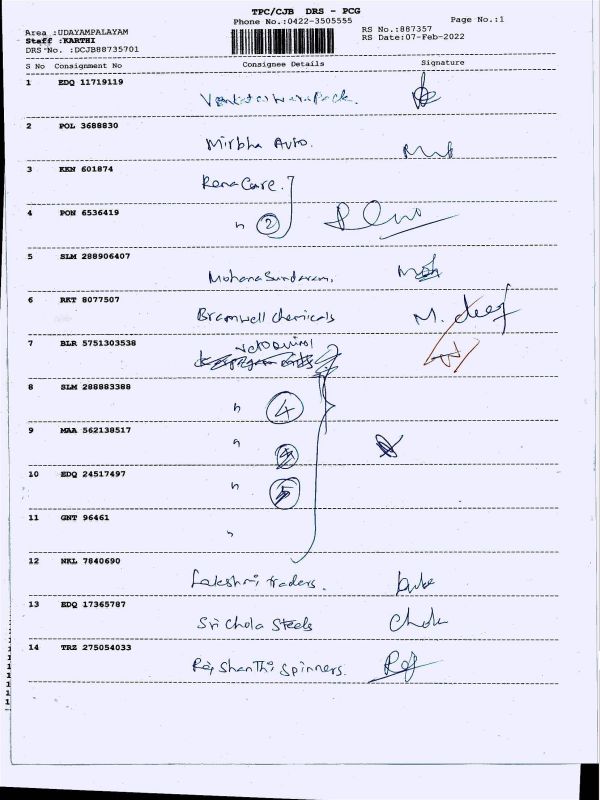 TPC/CJB DRS - PCG
Phone No.:0422-3505555
Page No.:1
Area :UDAYAMPALAYAM
RS No.:887357
Staff :KARTHI
RS Date:07-Feb-2022
DRS No. :DCJB88735701
S No Consignment No Consignee Details Signature
1 EDQ 11719119
Venkateswara Pack.
2 POL 3688830
Mirbha Auto.
3 KKN 601874
Rena Care.
4 PON 6536419
" 2
5 SLM 288906407
Mohana Sundaram.
6 RKT 8077507
Bramwell chemicals
7 BLR 5751303538
Vetoquinol
8 SLM 288883388
" 4
9 MAA 562138517
"
10 EDQ 24517497
" 5
11 GNT 96461
"
12 NKL 7840690
Lakshmi traders.
13 EDQ 17365787
Sri Chola Steels
14 TRZ 275054033
Raj Shanthi Spinners.